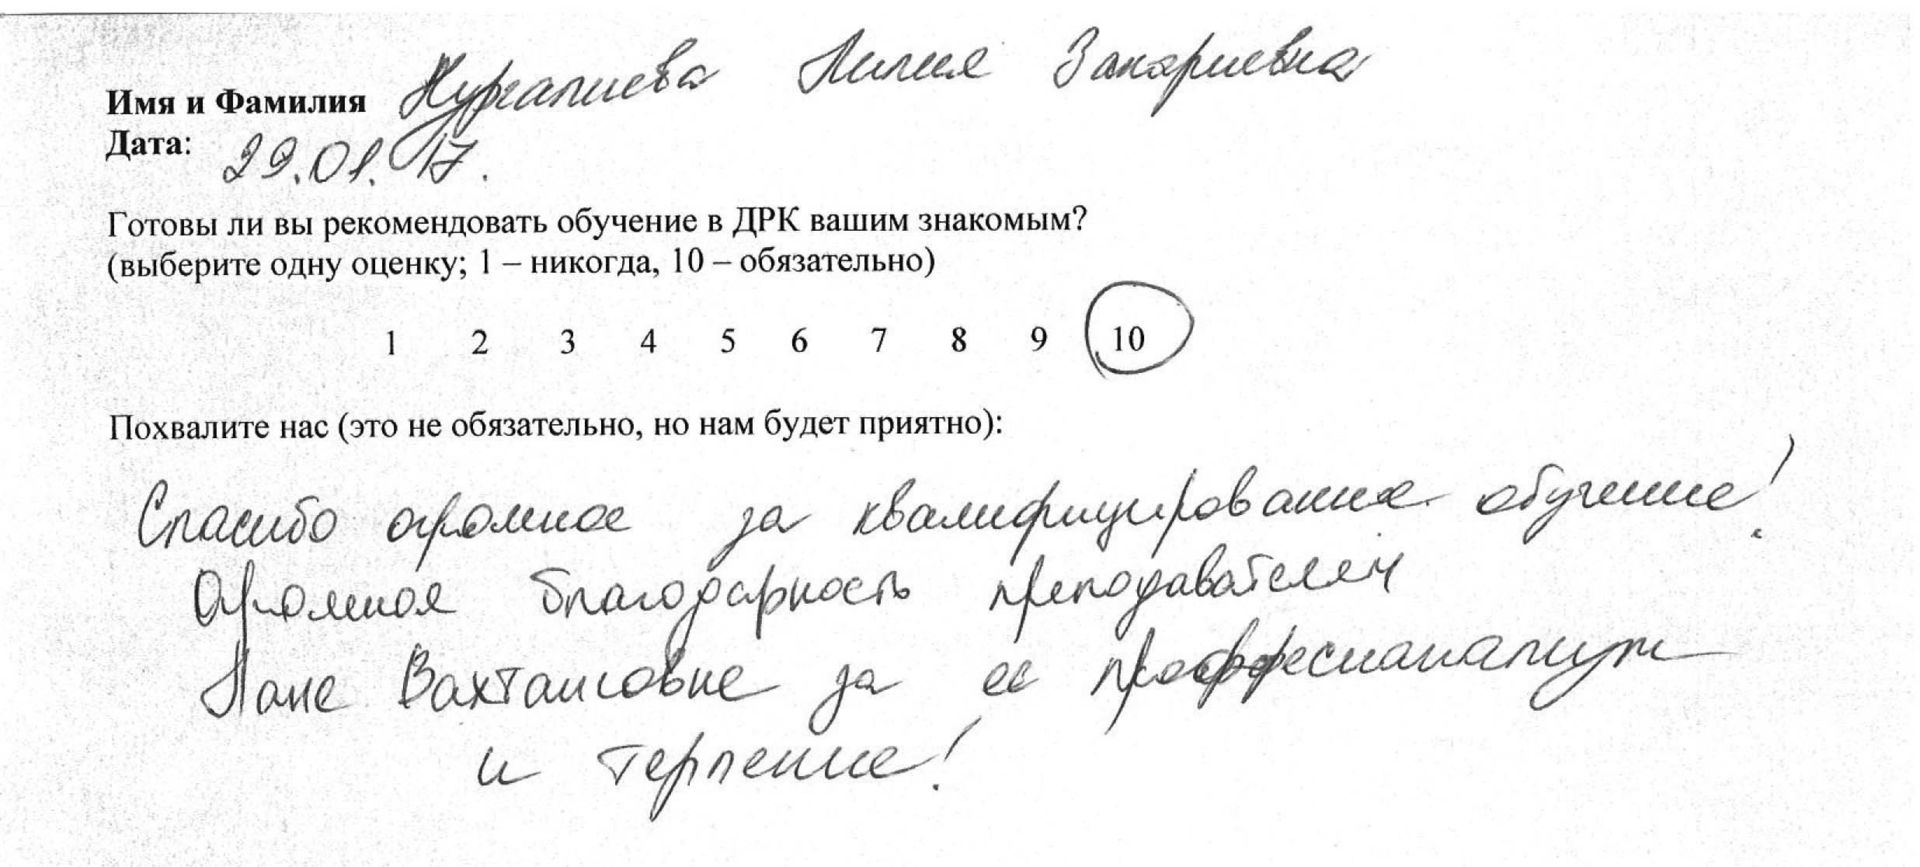 Имя и Фамилия Нургалиева Лилия Закариевна
Дата: 29.01.17.
Готовы ли вы рекомендовать обучение в ДРК вашим знакомым?
(выберите одну оценку; 1 – никогда, 10 – обязательно)
1 2 3 4 5 6 7 8 9 10
Похвалите нас (это не обязательно, но нам будет приятно):
Спасибо огромное за квалифицированное обучение!
Огромная благодарность преподавателям
Лане Вахтанговне за ее профессианализм
и терпение!